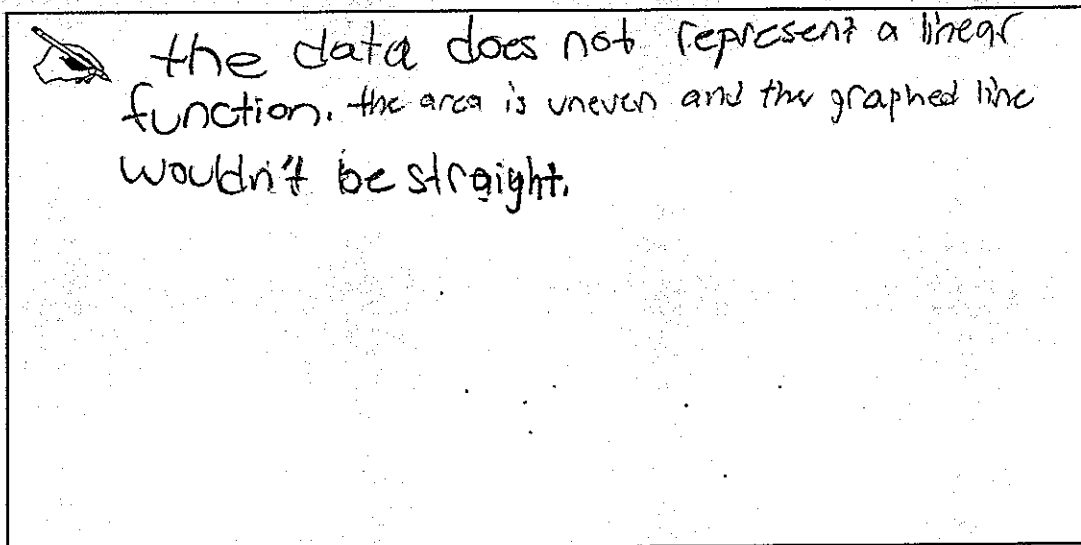 the data does not represent a linear
function. the area is uneven and the graphed line
wouldn't be straight.